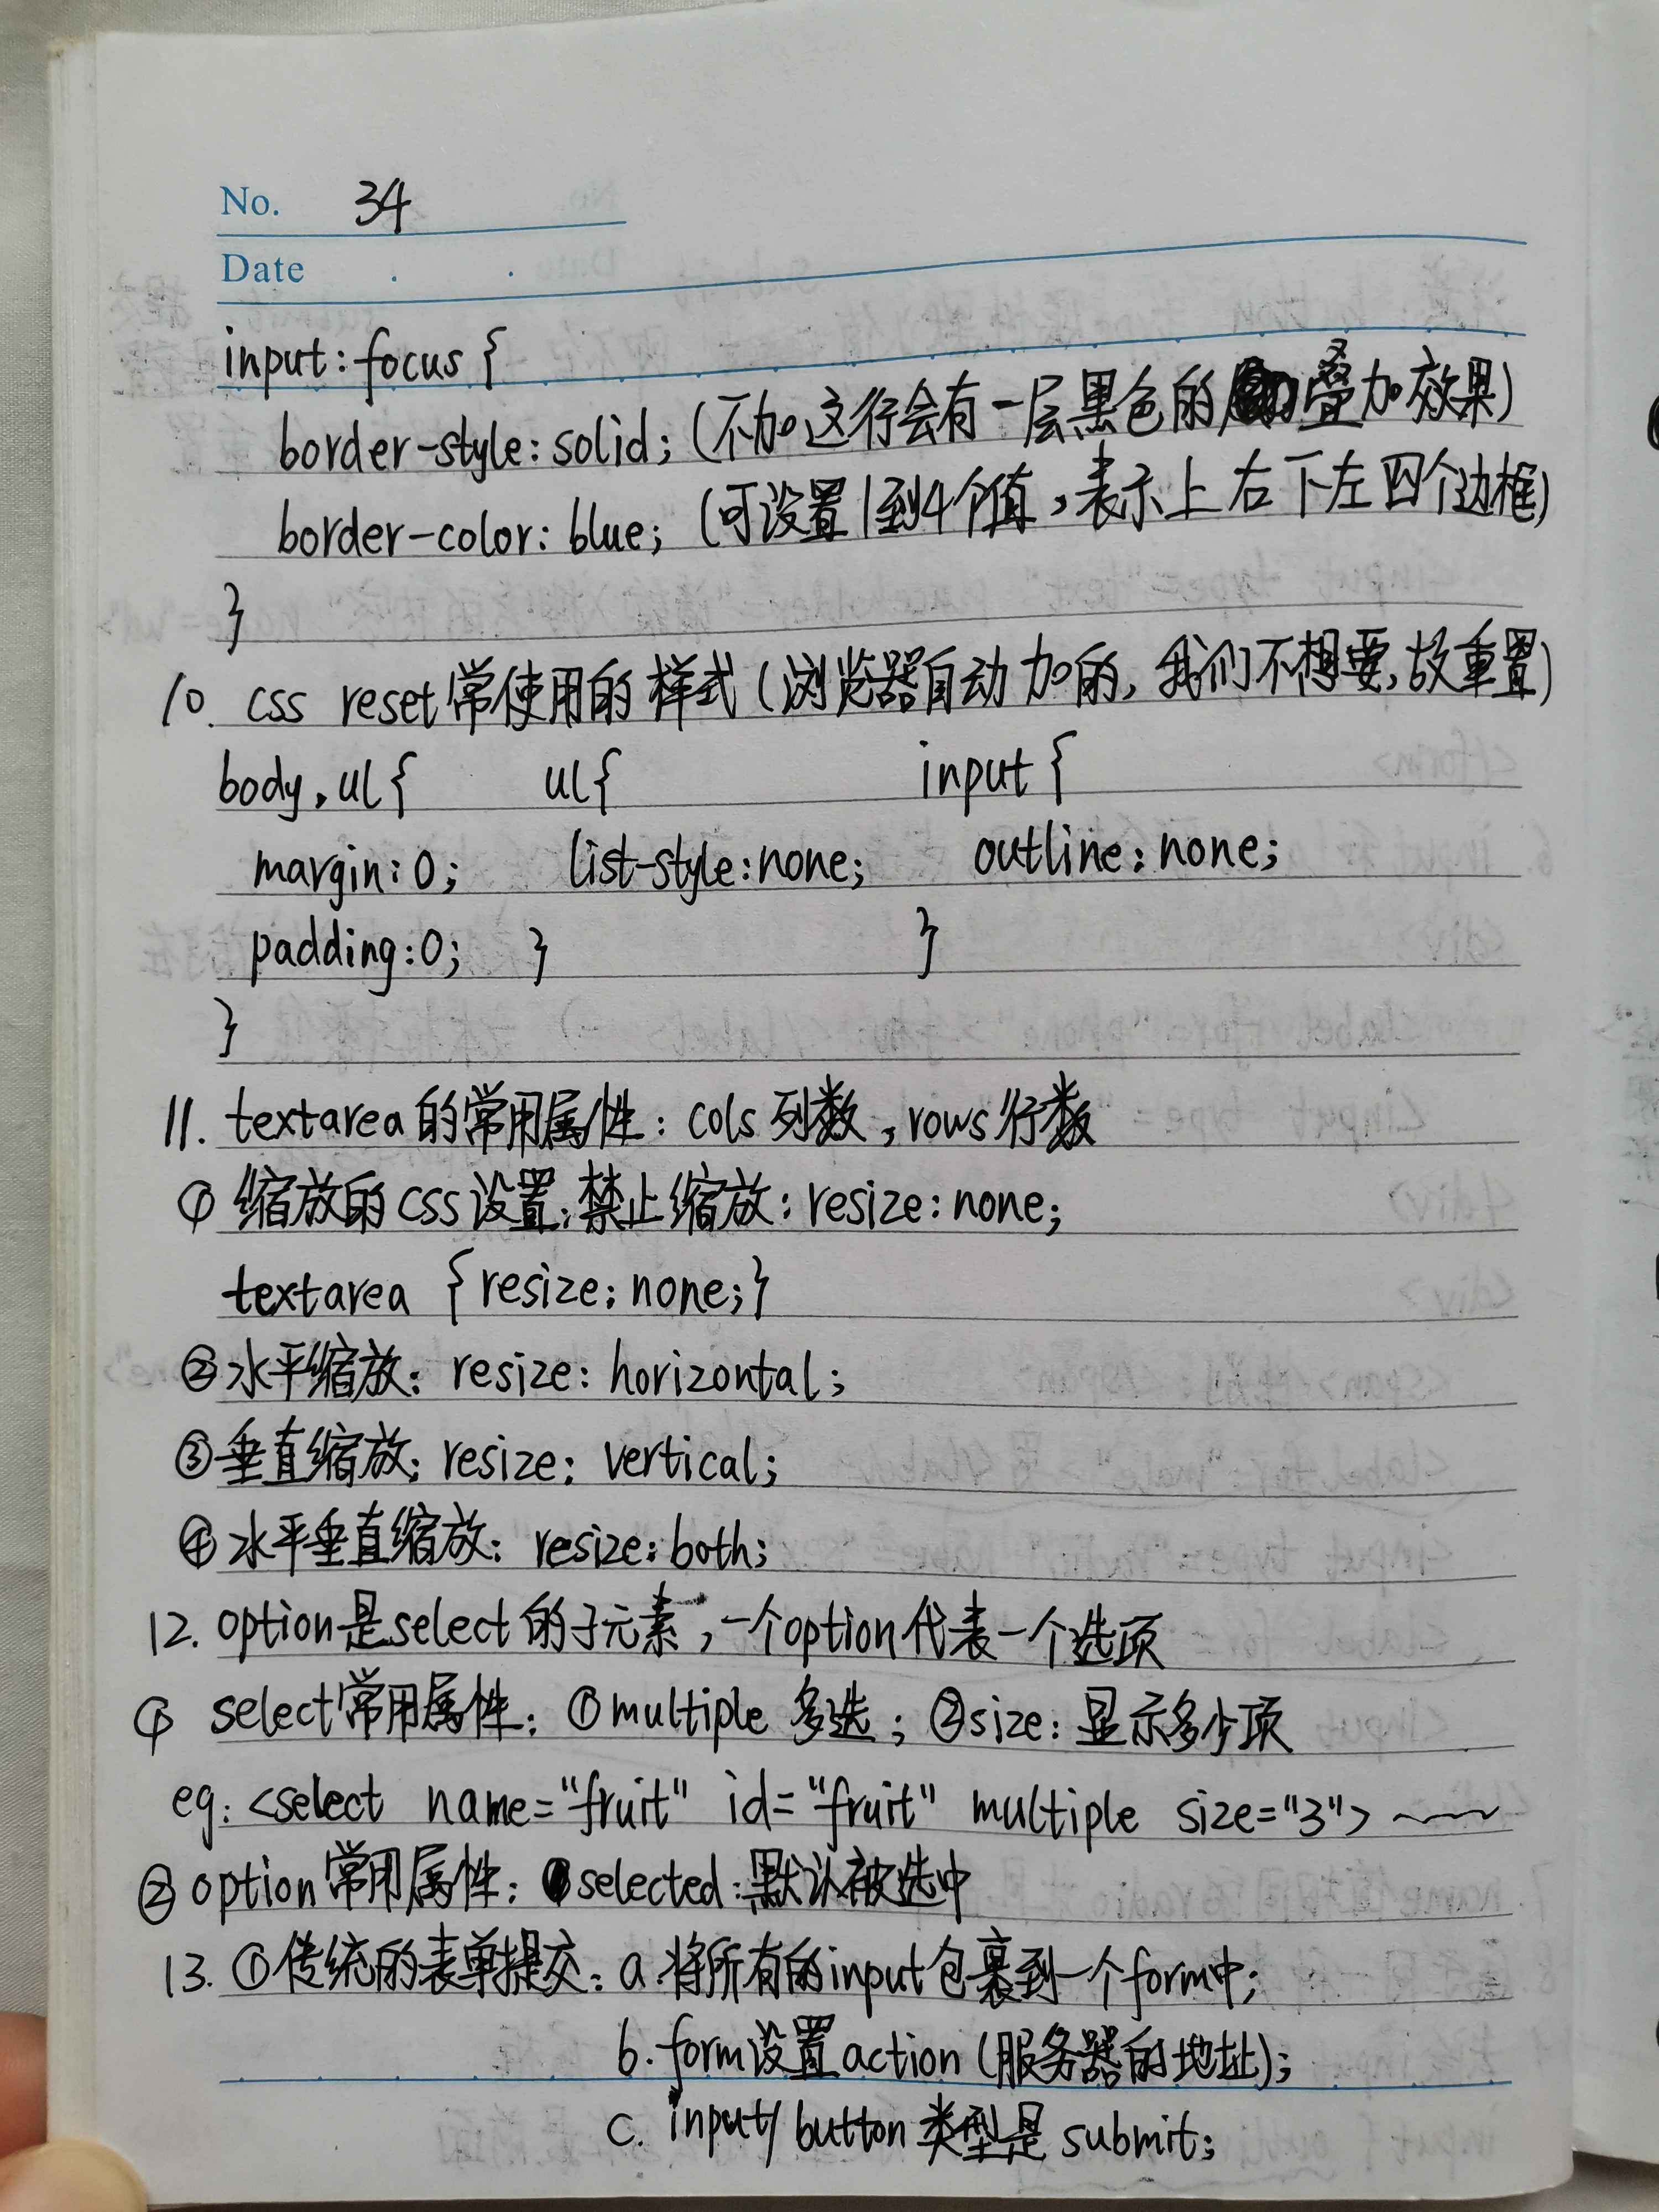 No. 34
Date . .
input:focus{
border-style:solid; (不加这行会有一层黑色的叠加效果)
border-color: blue; (可设置1到4个值,表示上右下左四个边框)
}
10. css reset常使用的样式(浏览器自动加的,我们不想要,故重置)
body,ul{ ul{ input{
margin:0; list-style:none; outline:none;
padding:0; } }
}
11. textarea的常用属性:cols列数,rows行数
① 缩放的css设置:禁止缩放:resize:none;
textarea {resize:none;}
②水平缩放:resize:horizontal;
③垂直缩放:resize:vertical;
④水平垂直缩放:resize:both;
12. option是select的子元素,一个option代表一个选项
① select常用属性:①multiple 多选;②size:显示多少项
eg:<select name="fruit" id="fruit" multiple size="3">~~~
②option常用属性:selected:默认被选中
13. ①传统的表单提交:a.将所有的input包裹到一个form中;
b.form设置action(服务器的地址);
c. input/button类型是submit;